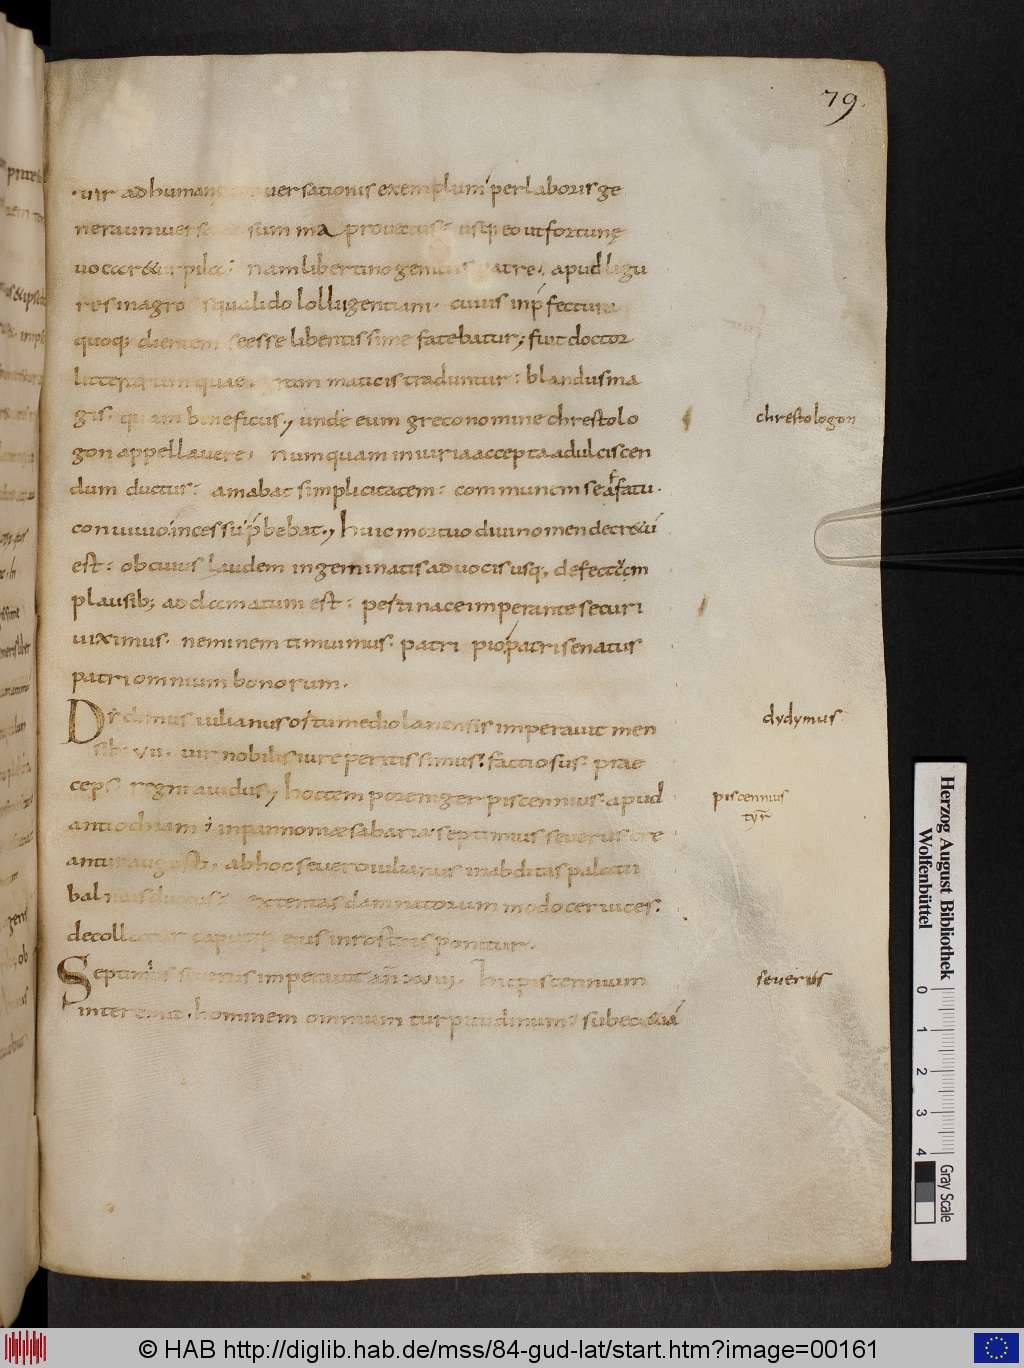 79
vir ad humane conversationis exemplum per laboris ge
nera universa ad summa provectus usq; eo ut fortunę
vocaretur pila; nam libertino genitus patre, apud ligu
res in agro squalido lolli gentiani. cuius in p̄fectura
quoq; clientem se esse libentissime fatebatur; fuit doctor
litterarum quae grammaticis traduntur: blandus ma
gis. quam beneficus., unde eum greco nomine chrestolo
chrestologon
gon appellavere, numquam iniuria accepta ad ulciscen
dum ductur: amabat simplicitatem: communem se affatu.
convivio. incessu p̄bebat., huic mortuo divi nomen decretū
est: ob cuius laudem ingeminatis ad vocis usq; defectum
plausib; adclamatum est: pertinace imperante securi
viximus. neminem timuimus. patri pio, patri senatus
patri omnium bonorum.
Didimus iulianus ortu mediolanensis imperavit men
dydymus
sib; VII. vir nobilis iure peritissimus. factiosus. prae
ceps regni avidus, hoc tempore niger piscennius. apud
piscennius
tyr
antiochiam; in pannoniae sabaria septimus severus cre
antur augusti. ab hoc severo iulianus in abditis palatii
balneis ductus; extentas damnatorum modo cervices.
decollatur caputq; eius in rostris ponitur.
Septimius severus imperavit an̄ XVIII. hic piscennium
severus
interemit. hominem omnium turpitudinum; sub eo etiā
Herzog August Bibliothek
Wolfenbüttel
0 1 2 3 4
Gray Scale
© HAB http://diglib.hab.de/mss/84-gud-lat/start.htm?image=00161